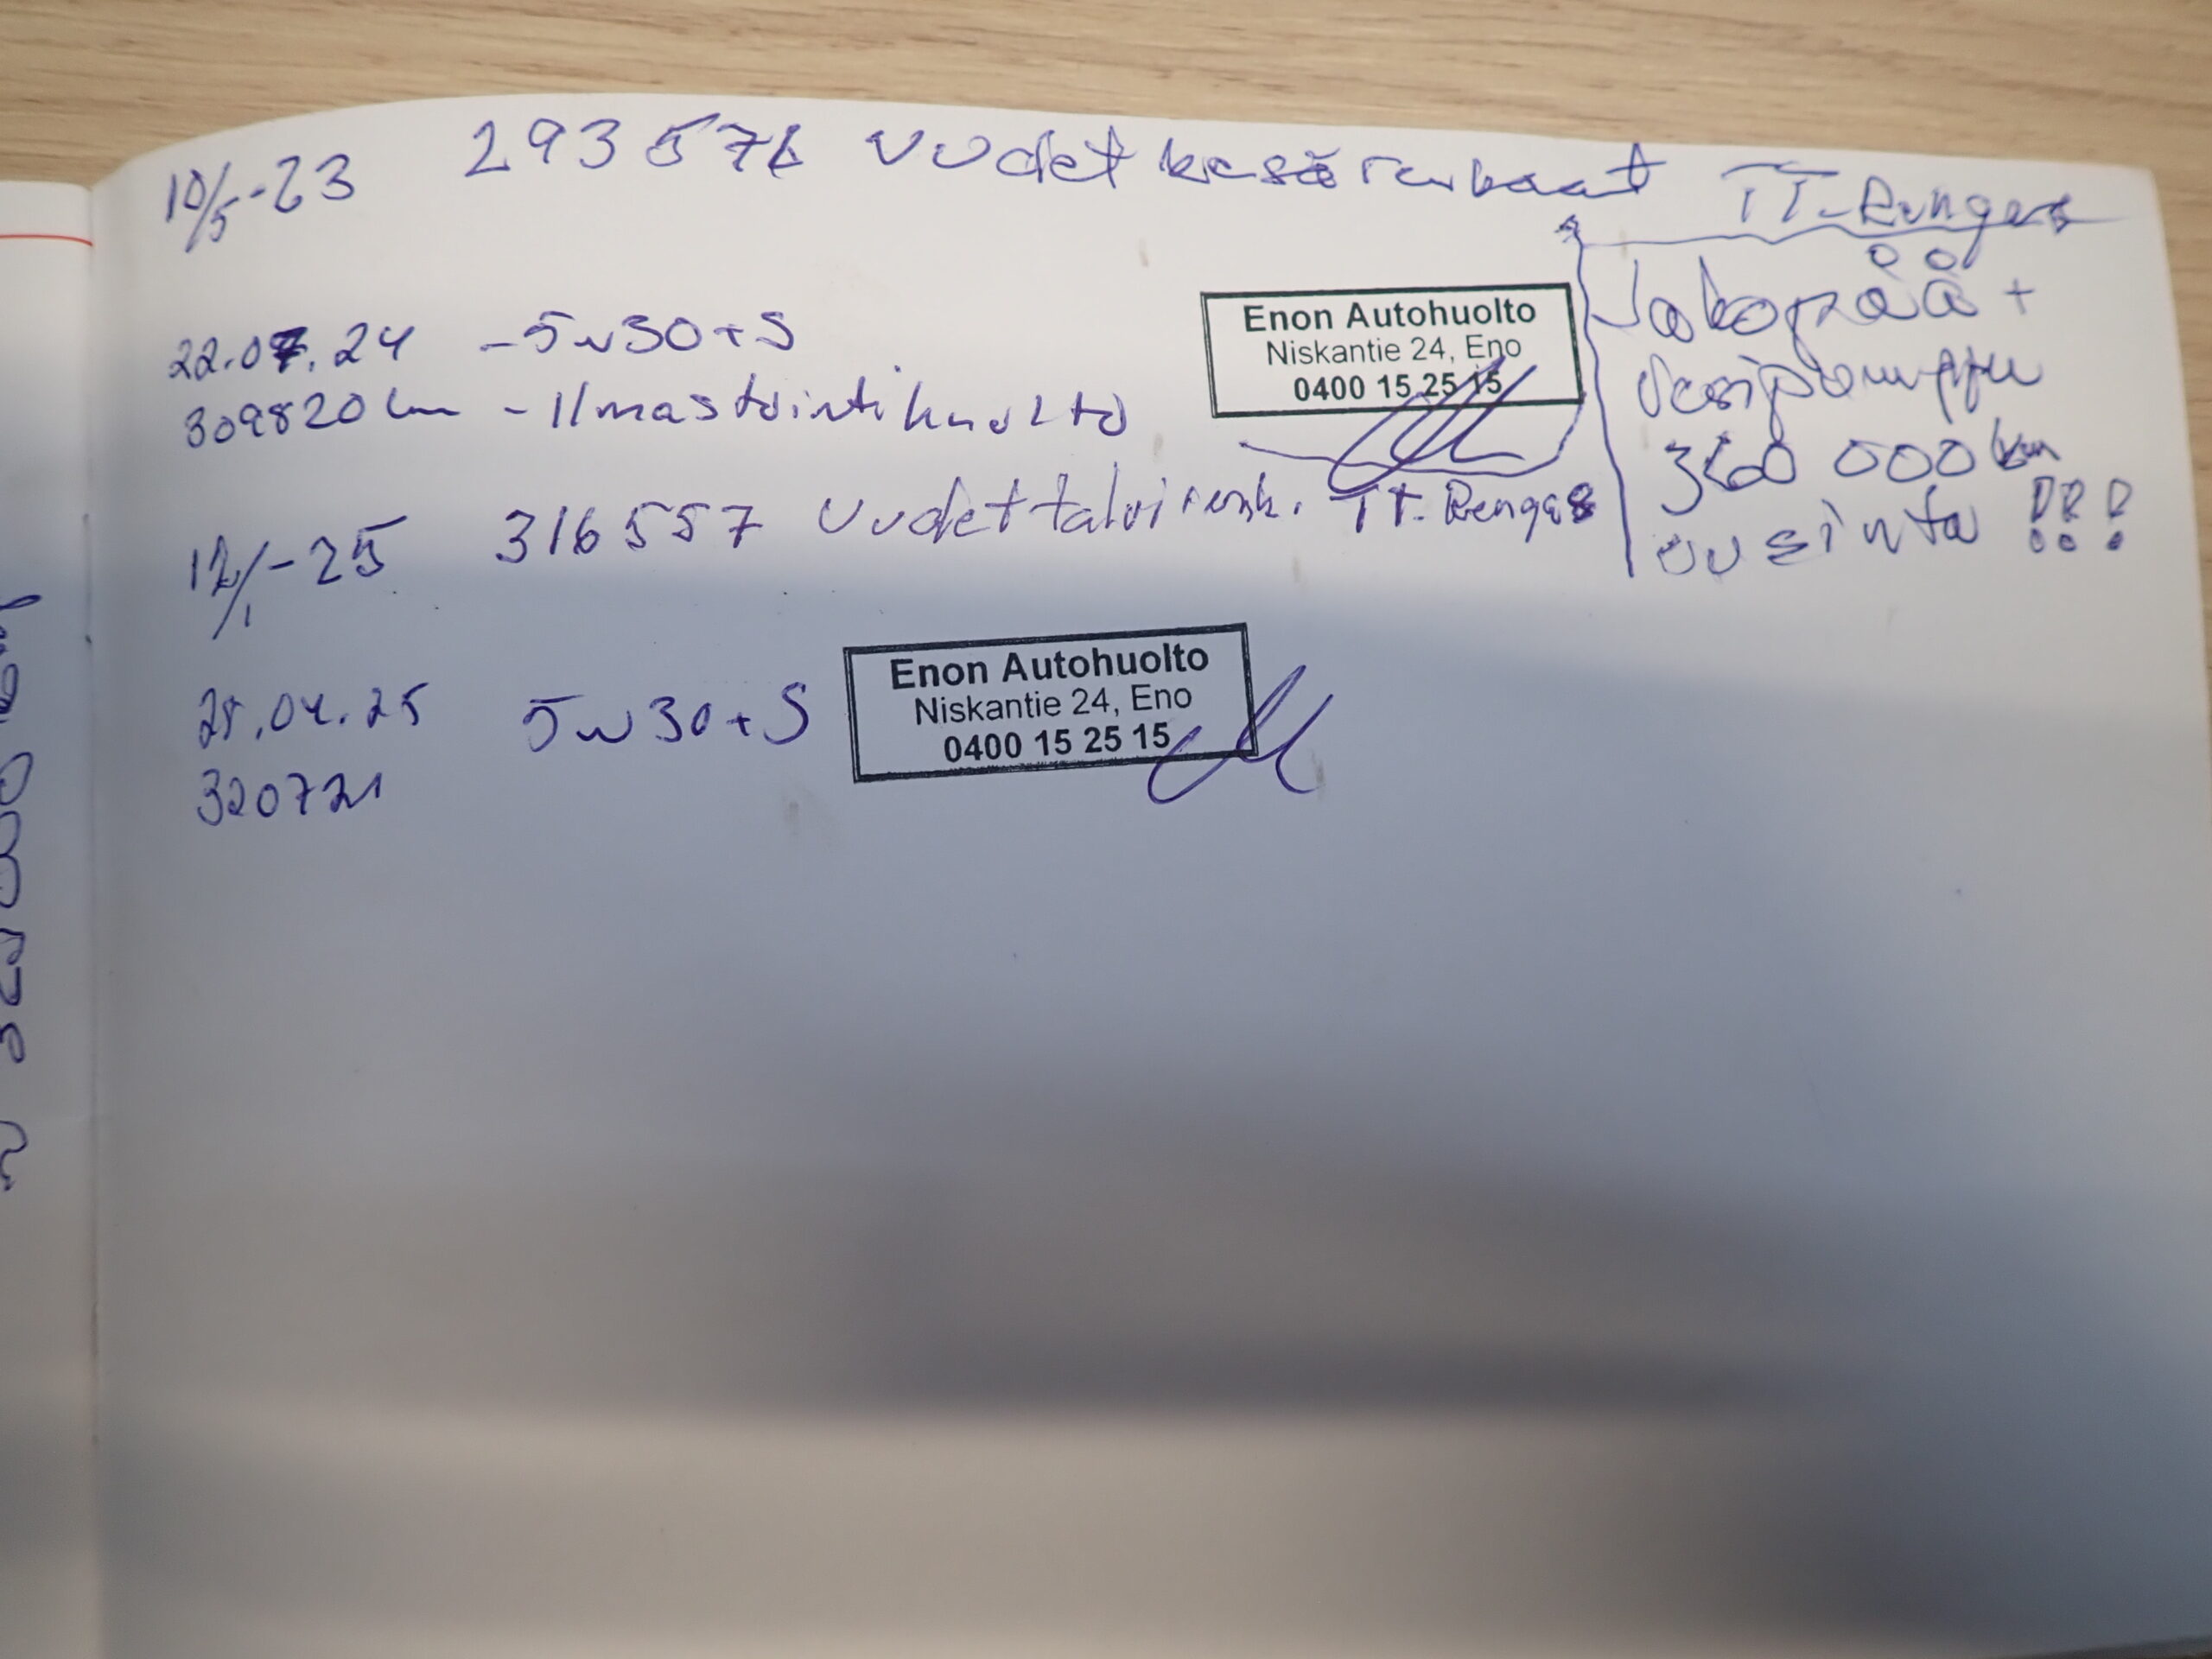 10/5-23 293 576 Uudet kesärenkaat TT-Rengas
22.07.24 - 5w30+S
309820 km - Ilmastointihuolto
Enon Autohuolto
Niskantie 24, Eno
0400 15 25 15
Jakopää +
Vesipumppu
360 000 km
uusinta !!!
12/1-25 316 557 Uudet talvirenk. TT-Rengas
28.04.25 5w30+S
320721
Enon Autohuolto
Niskantie 24, Eno
0400 15 25 15